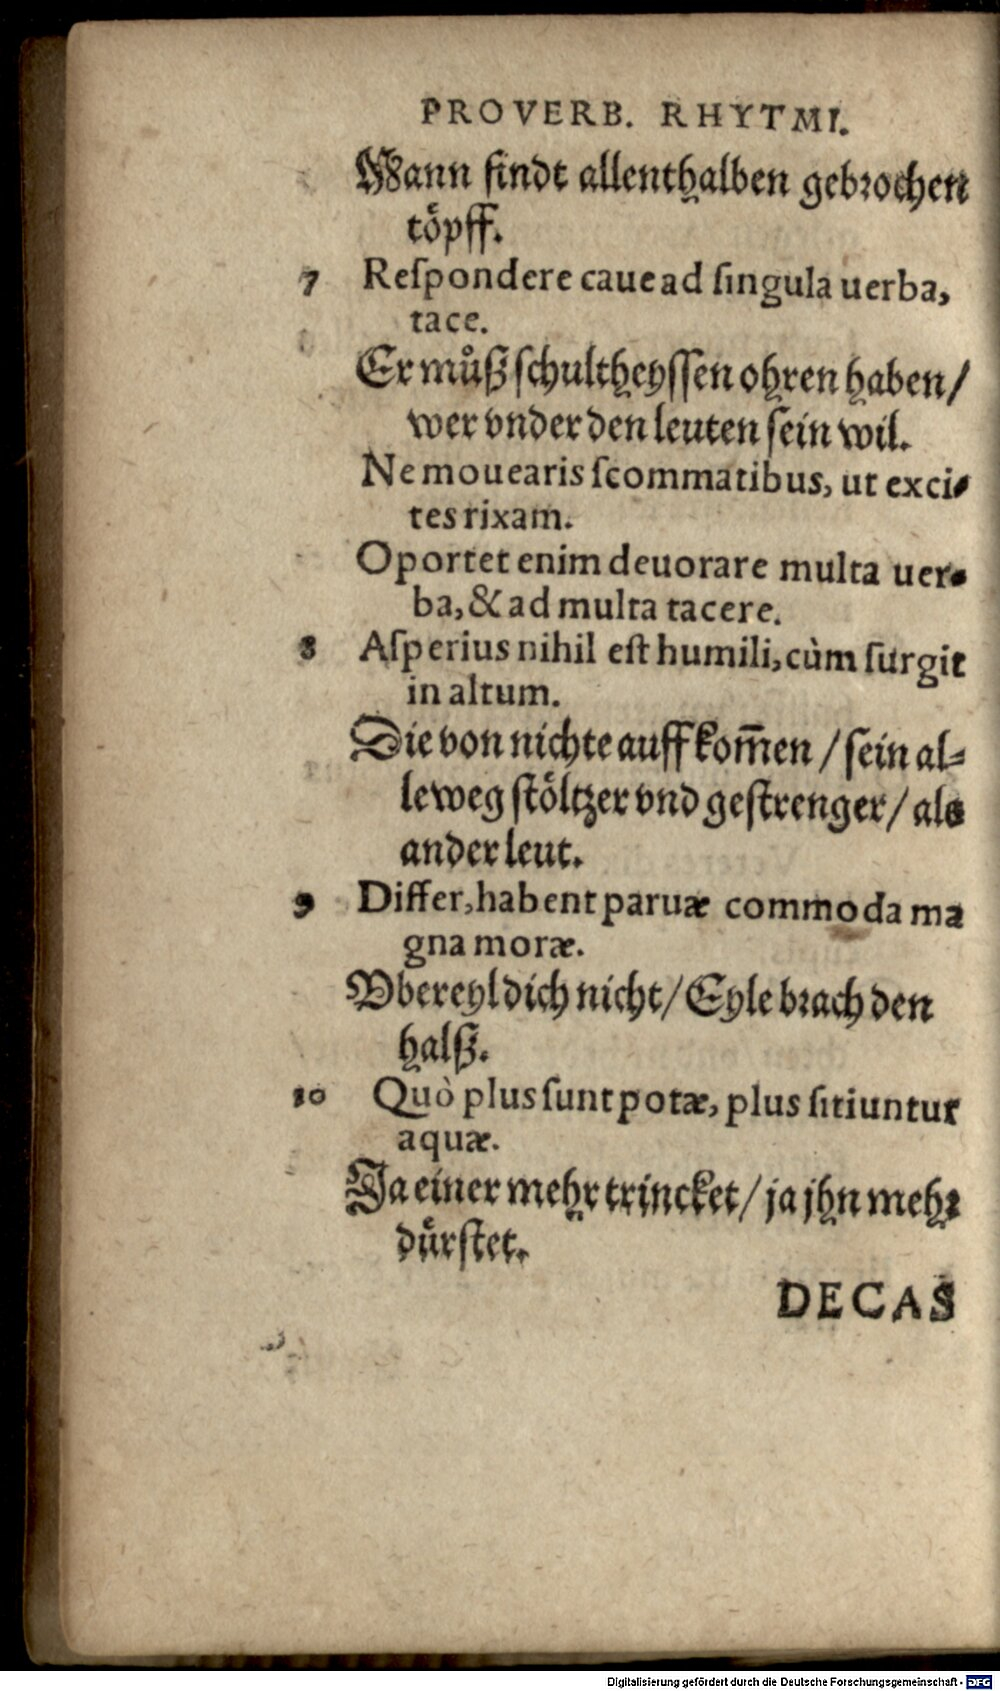 PROVERB. RHYTMI.
Mann findt allenthalben gebrochen
töpff.
7 Reſpondere caue ad ſingula uerba,
tace.
Er můß ſchultheyſſen ohren haben/
wer vnder den leuten ſein wil.
Ne mouearis ſcommatibus, ut exci-
tes rixam.
Oportet enim deuorare multa uer-
ba, & ad multa tacere.
8 Aſperius nihil eſt humili, cùm ſurgit
in altum.
Die von nichte auff kom̄en / ſein al-
leweg ſtöltzer vnd geſtrenger / als
ander leut.
9 Differ, habent paruæ commoda ma
gna moræ.
Vbereyl dich nicht / Eyle brach den
halß.
10 Quò plus ſunt potæ, plus ſitiuntur
aquæ.
Ja einer mehr trincket / ja jhn mehr
dürſtet.
DECAS
Digitalisierung gefördert durch die Deutsche Forschungsgemeinschaft - DFG